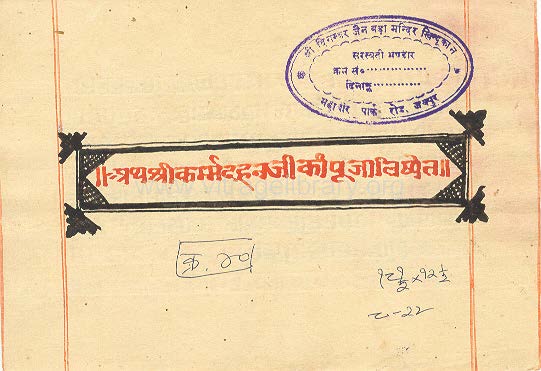 श्री दिगम्बर जैन बड़ा मन्दिर
सरस्वती भण्डार
क्रम सं०
दिनाङ्क
महावीर पार्क रोड, जयपुर
॥अथश्रीकर्म्मदहनजीकीपूजालिष्यते॥
www.vitragelibrary.org
क्र. ४०
१८ १/२ × १२ १/२
८-२२